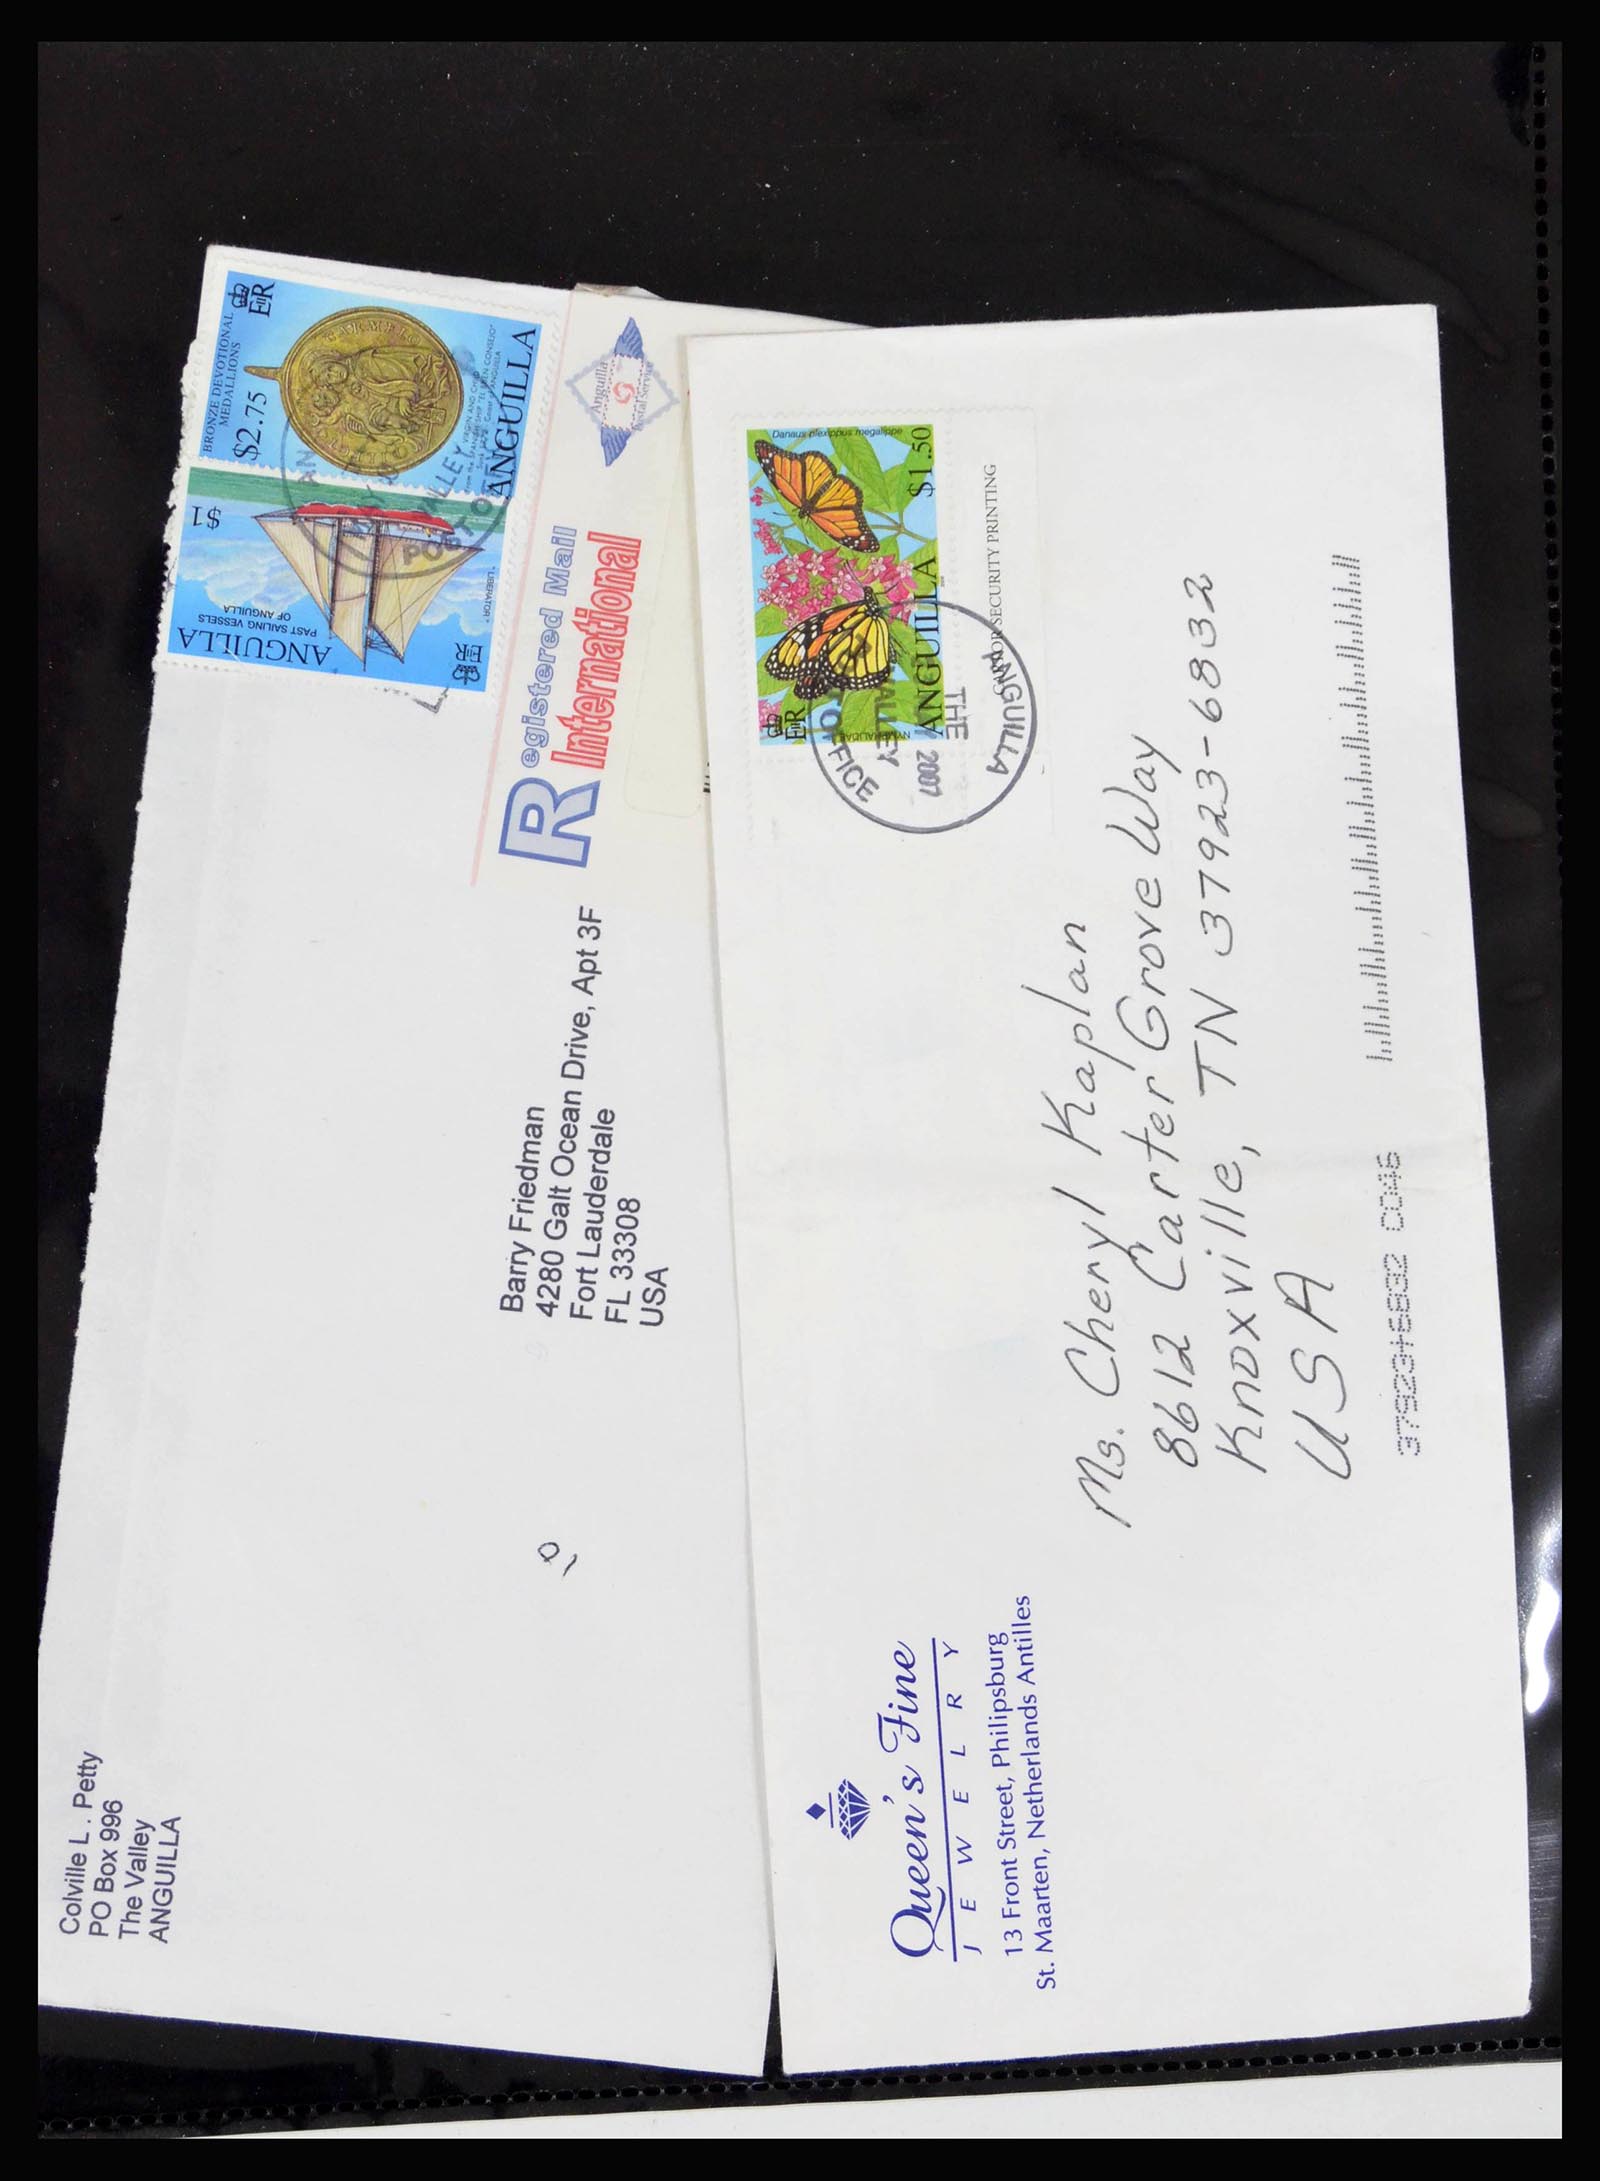 Colville L . Petty
PO Box 996
The Valley
ANGUILLA
BRONZE DEVOTIONAL
MEDALLIONS
$2.75
EIIR
VIRGIN AND CHILD
ANGUILLA
$1
"LIBERATOR"
PAST SAILING VESSELS
OF ANGUILLA
ANGUILLA
EIIR
VALLEY
POST O
Anguilla
Postal Service
Registered Mail
International
Barry Friedman
4280 Galt Ocean Drive, Apt 3F
Fort Lauderdale
FL 33308
USA
Queen's Fine
JEWELRY
13 Front Street, Philipsburg
St. Maarten, Netherlands Antilles
Danaus plexippus megalippe
$1.50
ANGUILLA
EIIR
NYMPHALIDAE
SECURITY PRINTING
ANGUILLA
THE
2007
VALLEY
Ms. Cheryl Kaplan
8612 Carter Grove Way
Knoxville, TN 37923-6832
USA
37923+6832 CO46